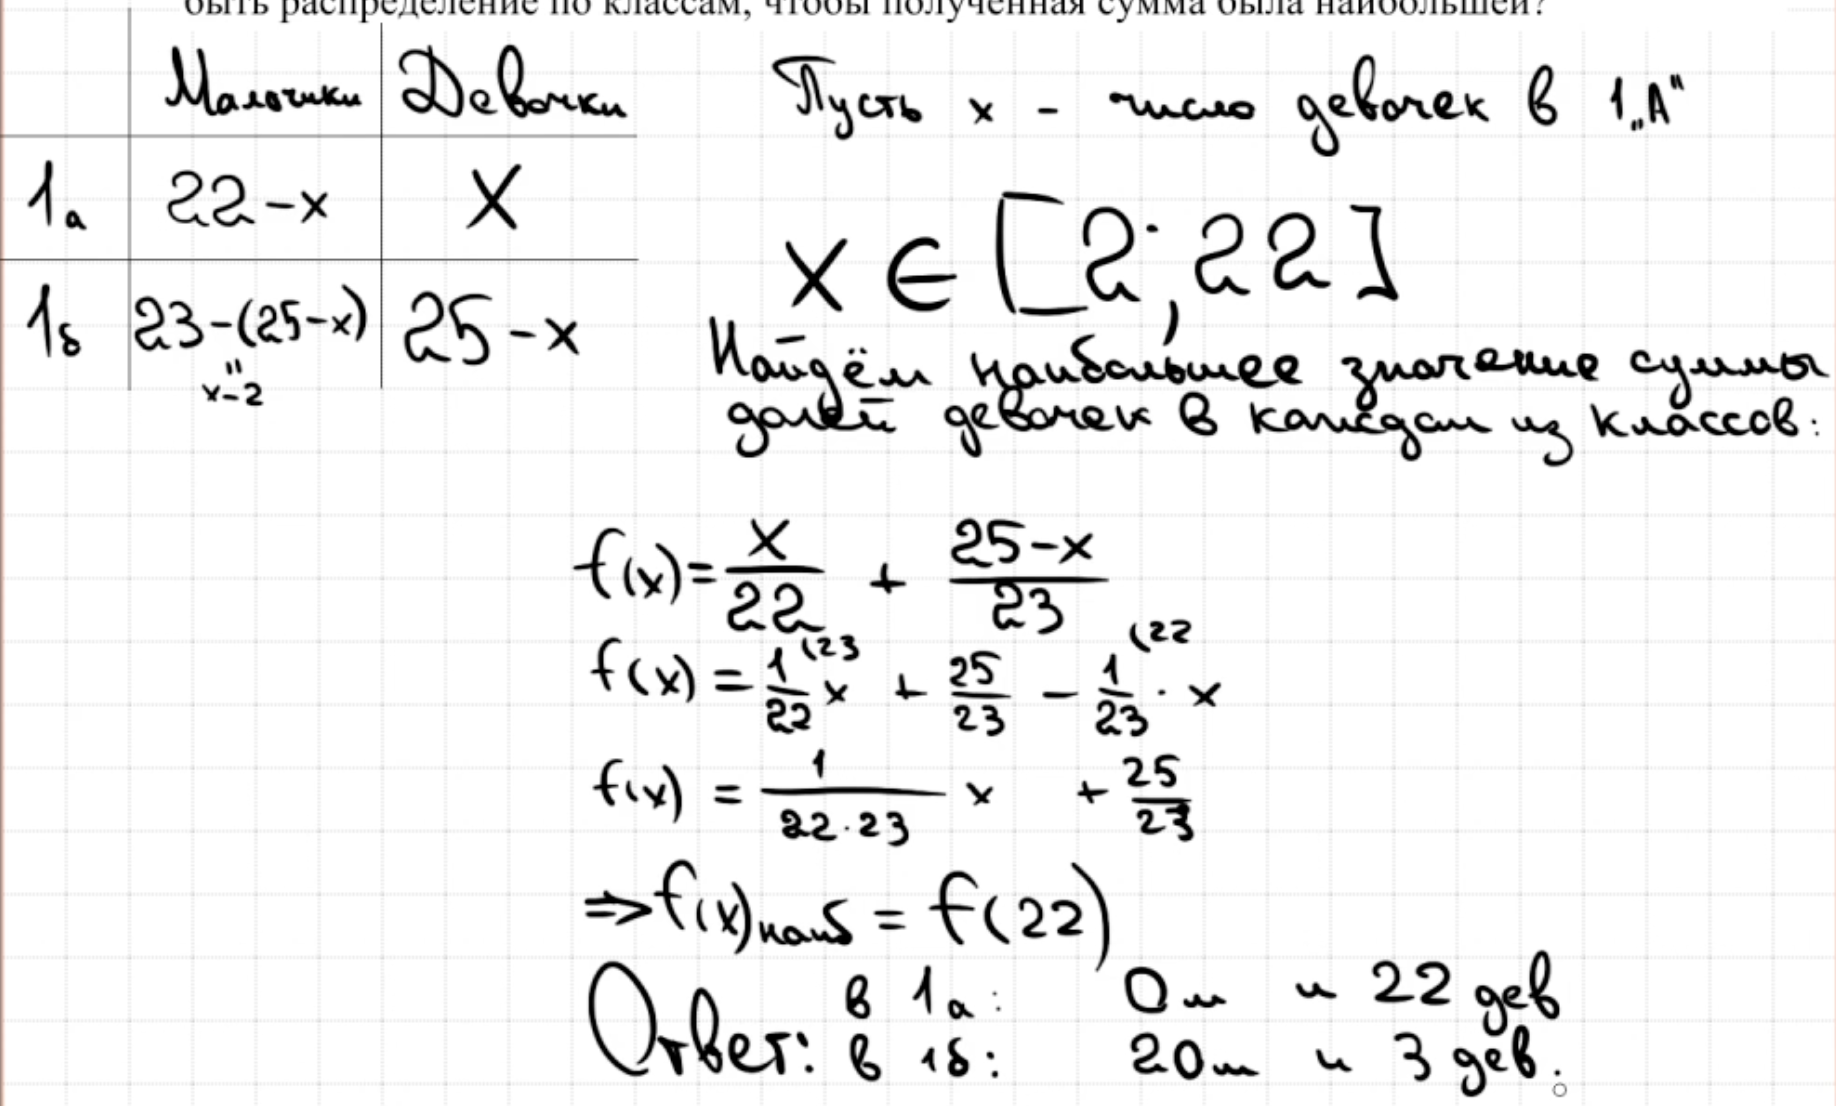 быть распределение по классам, чтобы полученная сумма была наибольшей?
Мальчики Девочки
1а 22-x x
1б 23-(25-x) 25-x
"
x-2
Пусть x - число девочек в 1„А"
x ∈ [2; 22]
Найдём наибольшее значение суммы
долей девочек в каждом из классов:
f(x) = x/22 + (25-x)/23
f(x) = 1/22 (23 x + 25/23 - 1/23 (22 · x
f(x) = 1/(22·23) x + 25/23
⇒ f(x)наиб = f(22)
Ответ: в 1а: 0м и 22 дев
в 1б: 20м и 3 дев.